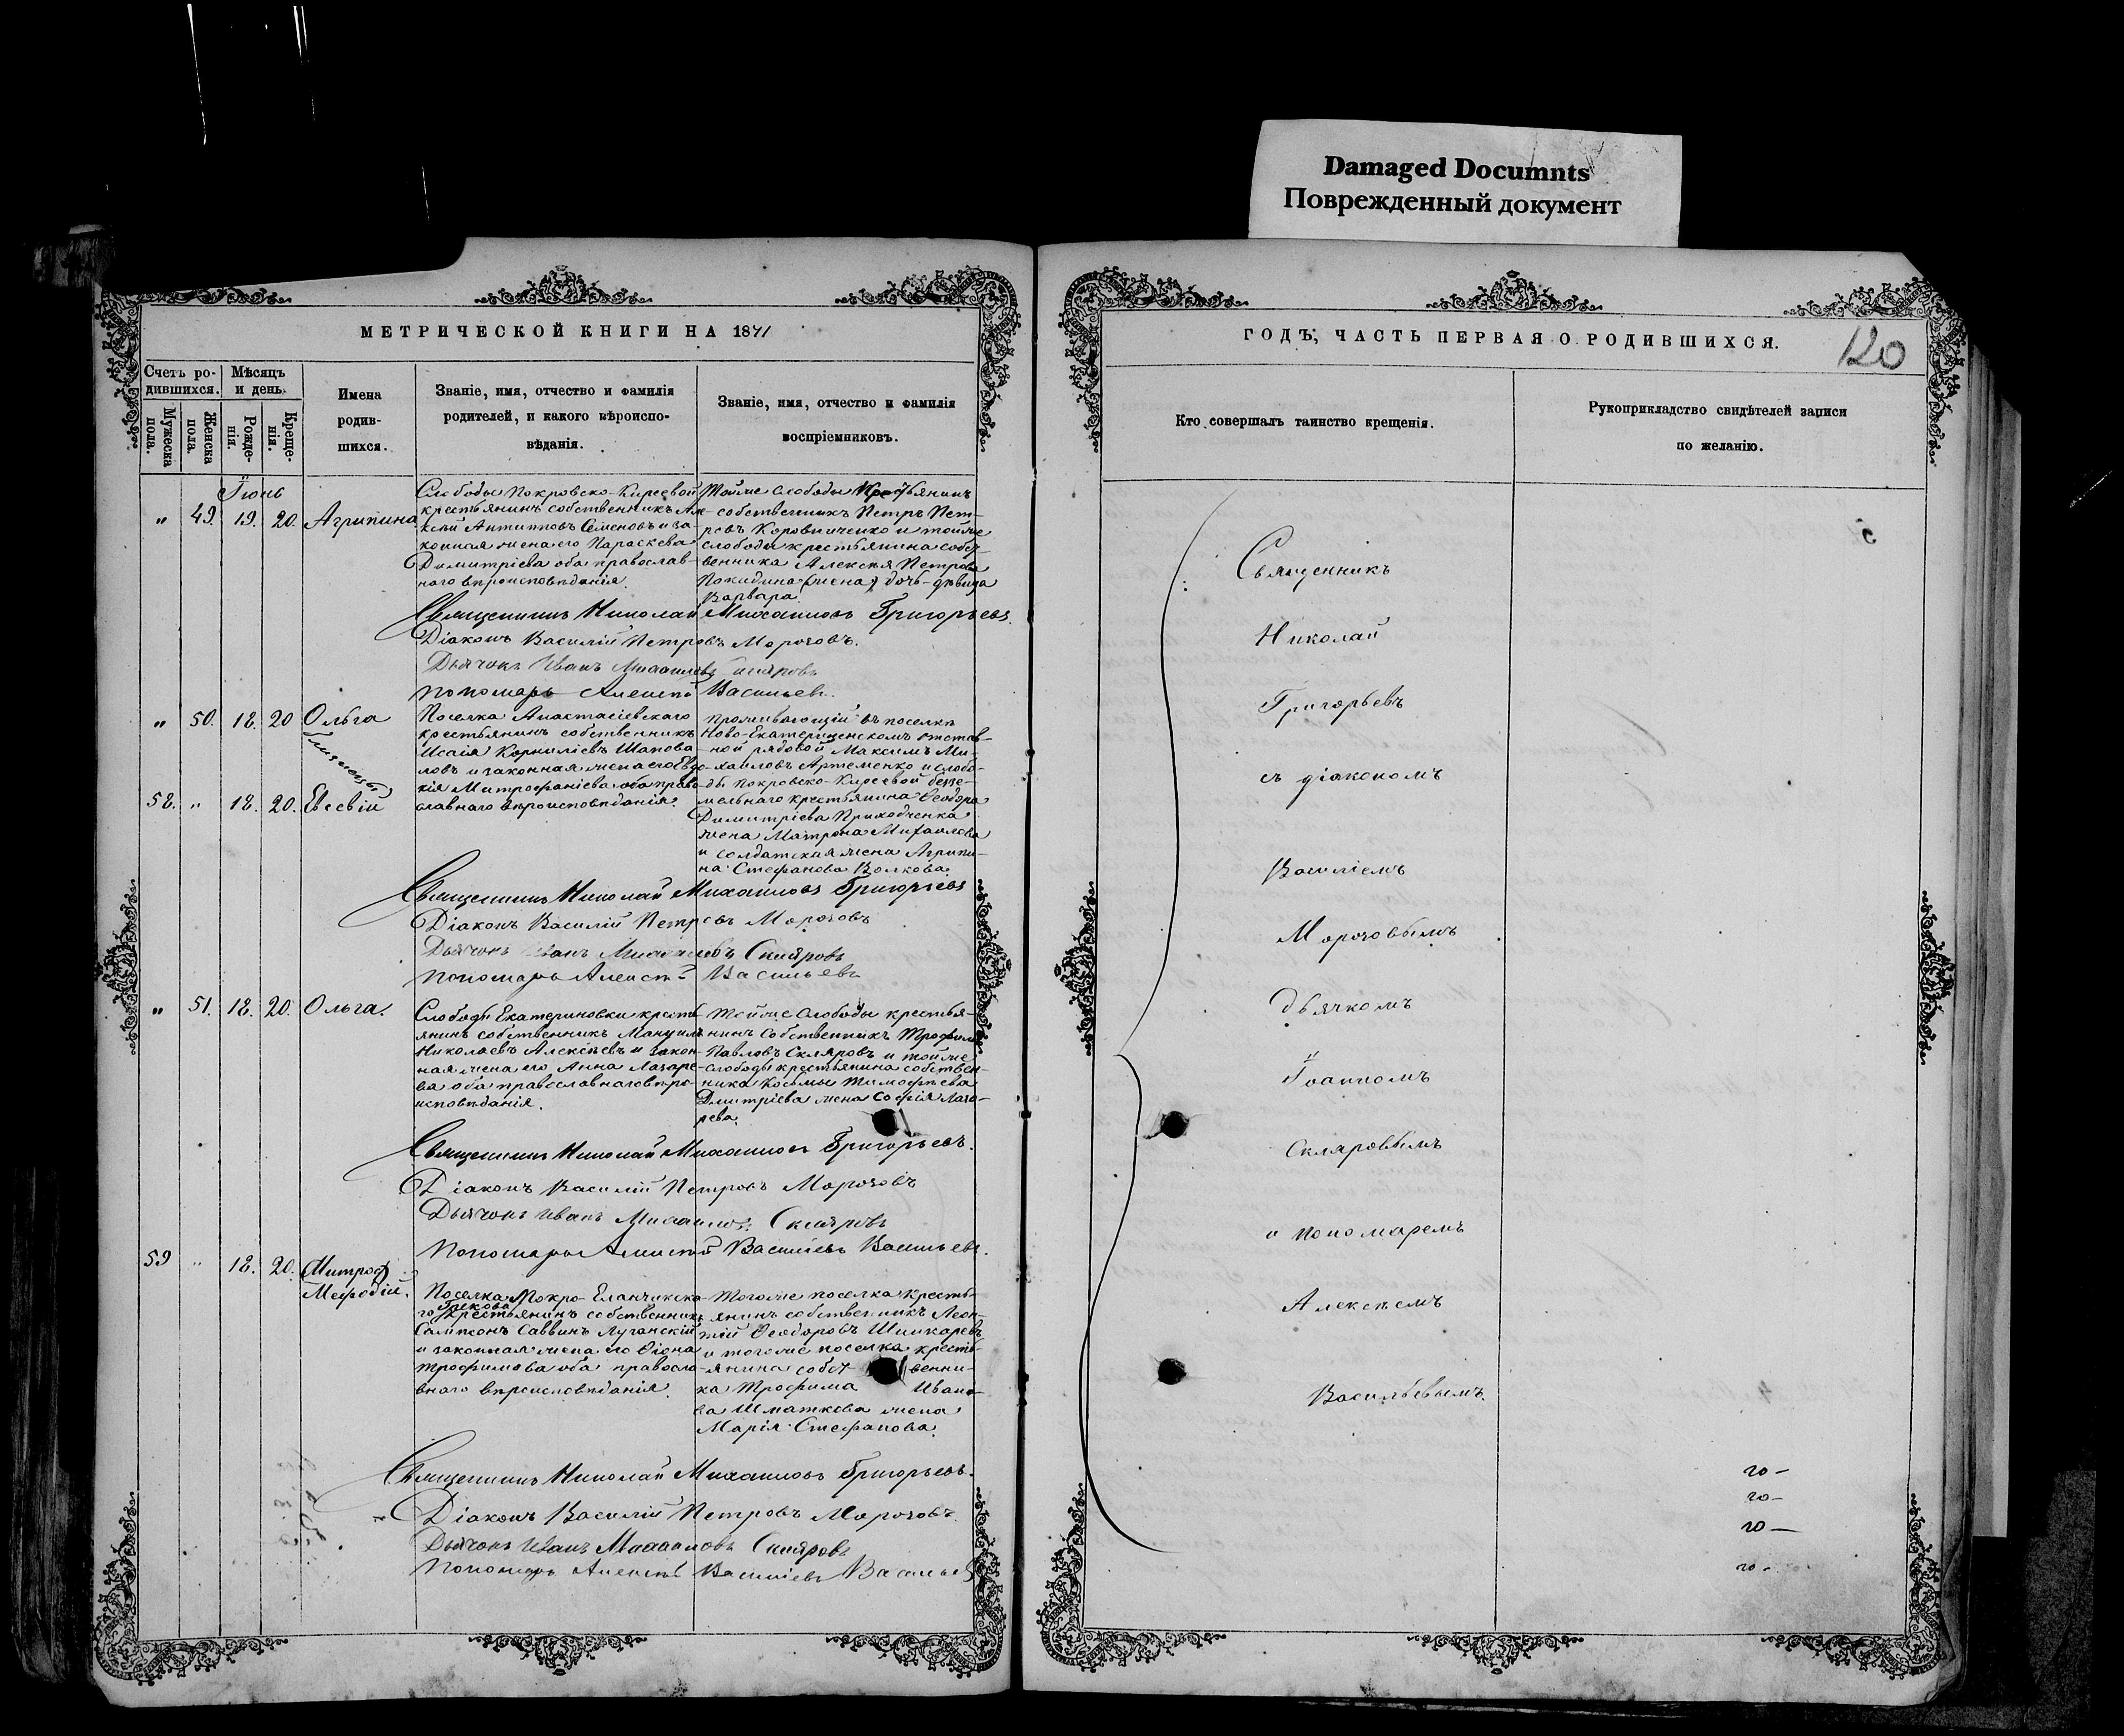 Damaged Documnts
Поврежденный документ
МЕТРИЧЕСКОЙ КНИГИ НА 1871
Счетъ ро-
дившихся.
Мѣсяцъ
и день.
Мужеска
пола.
Женска
пола.
Рожде-
нія.
Креще-
нія.
Имена
родив-
шихся.
Званіе, имя, отчество и фамилія
родителей, и какого вѣроиспо-
вѣданія.
Званіе, имя, отчество и фамилія
воспріемниковъ.
Іюнь
„ 49. 19. 20. Агрипина
Слободы Покровско-Киреевой
крестьянинъ собственникъ Але-
ксѣй Антиповъ Семеновъ и за-
конная жена его Параскева
Димитріева оба православ-
наго вѣроисповѣданія.
Тойже слободы крестьянинъ
собственникъ Петръ Пет-
ровъ Коровниченко и тойже
слободы крестьянина собст-
венника Алексѣя Петрова
дочь-дѣвица
Варвара
Священникъ Николай Михаиловъ Григорьевъ.
Діаконъ Василій Петровъ Морозовъ.
Дьячокъ Иванъ Михаиловъ Скляровъ
Пономарь Алексѣй Васильевъ.
„ 50. 18. 20 Ольга
близнецы
58. „ 18. 20. Евсевій
Поселка Анастасіевскаго
крестьянинъ собственникъ
Исаія Корниліевъ Шапова-
ловъ и законная жена его Евдо-
кія Митрофаніева оба право-
славнаго вѣроисповѣданія.
Проживающій въ поселкѣ
Ново-Екатериненскомъ отстав-
ной рядовой Максимъ Ми-
хаиловъ Артеменко и слобо-
ды Покровско-Киреевой беззе-
мельнаго крестьянина Ѳеодора
Димитріева Приходченка
жена Матрона Михаилова
и солдатская жена Агрипи-
на Стефанова Волкова.
Священникъ Николай Михаиловъ Григорьевъ
Діаконъ Василій Петровъ Морозовъ
Дьячокъ Иванъ Михаиловъ Скляровъ
Пономарь Алексѣй Васильевъ
„ 51. 18. 20. Ольга.
Слободы Екатериновки кресть-
янинъ собственникъ Мануилъ
Николаевъ Алексѣевъ и закон-
ная жена его Анна Лазаре-
ва оба православнаго вѣро-
исповѣданія.
Тойже слободы крестья-
нинъ собственникъ Трофимъ
Павловъ Скляровъ и тойже
слободы крестьянина собствен-
ника Косьмы Тимофѣева
Дмитріева жена Софія Лаза-
рева.
Священникъ Николай Михаиловъ Григорьевъ.
Діаконъ Василій Петровъ Морозовъ
Дьячокъ Иванъ Михаиловъ Скляровъ
Пономарь Алексѣй Василіевъ Васильевъ.
59 „ 18. 20. Митроф
Мефодій.
Поселка Мокро-Еланчикска-
го Грекова крестьянинъ собственникъ
Сампсонъ Саввинъ Луганскій
и законная жена его Ѳіона
Трофимова оба правосла-
внаго вѣроисповѣданія.
Тогоже поселка кресть-
янинъ собственникъ Леон-
тій Ѳеодоровъ Шинкаревъ
и тогоже поселка кресть-
янина собственни-
ка Трофима Ивано-
ва Шматкова жена
Марія Стефанова.
Священникъ Николай Михаиловъ Григорьевъ.
Діаконъ Василій Петровъ Морозовъ.
Дьячокъ Иванъ Михаиловъ Скляровъ
Пономарь Алексѣй Василіевъ Васильевъ
ГОДЪ, ЧАСТЬ ПЕРВАЯ О РОДИВШИХСЯ.
120
Кто совершалъ таинство крещенія.
Рукоприкладство свидѣтелей записи
по желанію.
Священникъ
Николай
Григорьевъ
съ діакономъ
Василіемъ
Морозовымъ
дьячкомъ
Іоанномъ
Скляровымъ
и пономаремъ
Алексѣемъ
Васильевымъ.
го-
го-
го-
го-